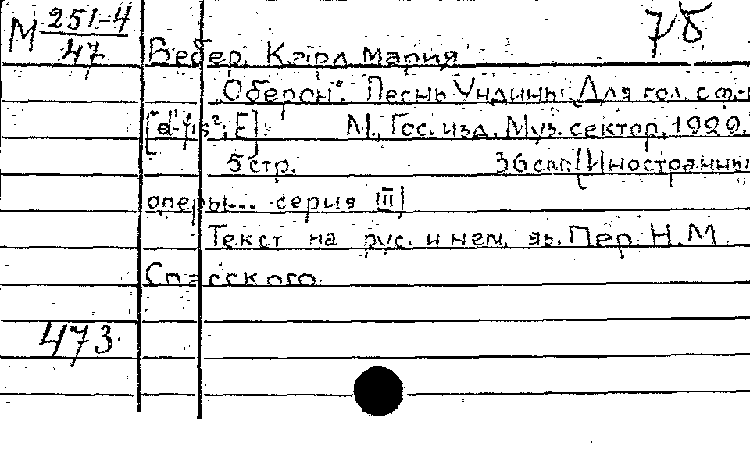 М 251-4/47
78
Вебер, Карл Мария
„Оберон". Песнь Ундины. Для гол. с ф.-
[d'-fis²; E] М., Гос. изд. Муз. сектор, 1929.
5 стр. 36 см. (Иностранны
оперы... серия III)
Текст на рус. и нем. яз. Пер. Н.М.
Спасского.
473